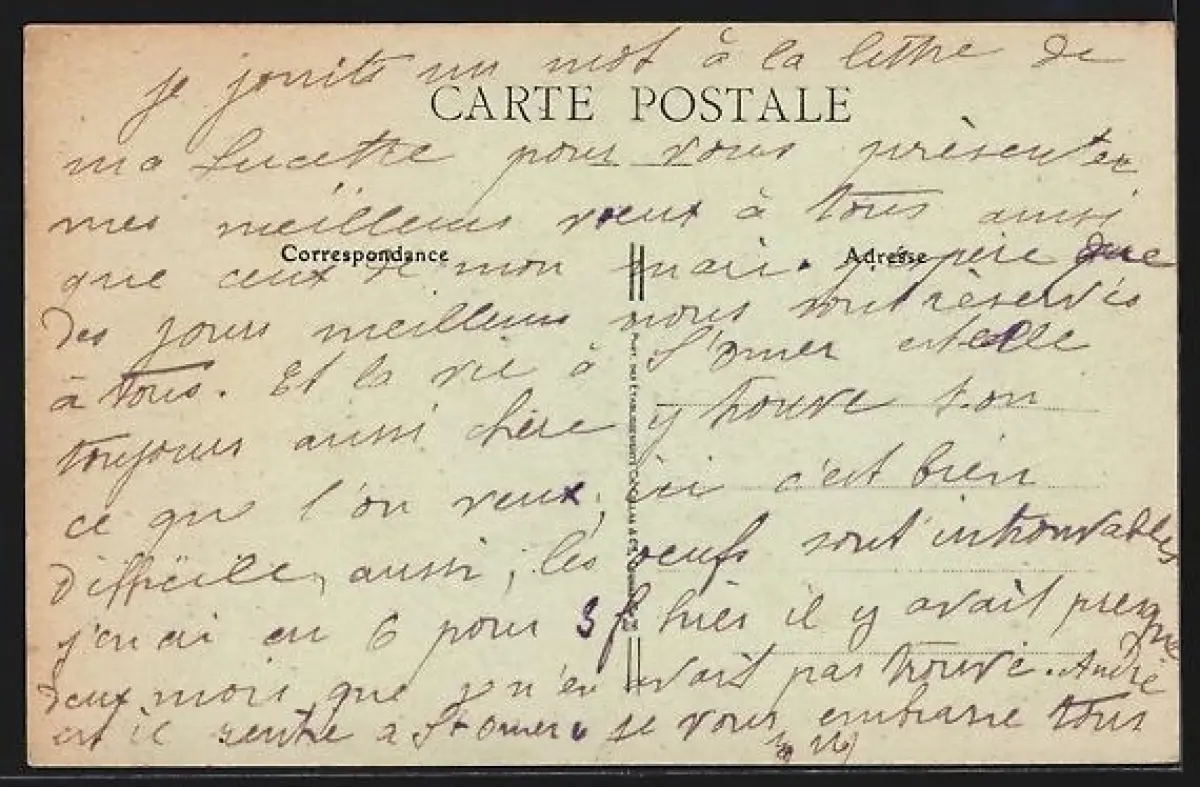 je joints un mot à la lettre de
CARTE POSTALE
ma Lucette pour vous présenter
mes meilleurs voeux à tous ainsi
Correspondance
Adresse
que ceux de mon mari. j'espère que
des jours meilleurs nous sont réservés
à tous. Et la vie à S'Omer est elle
toujours aussi chère y trouve t.on
ce que l'on veux, ici c'est bien
difficile, aussi, les oeufs sont introuvables
j'en ai eu 6 pour 3f hier il y avait presque
deux mois que je n'en avait pas trouvé. André
est il rentré a St Omer. je vous embrasse tous